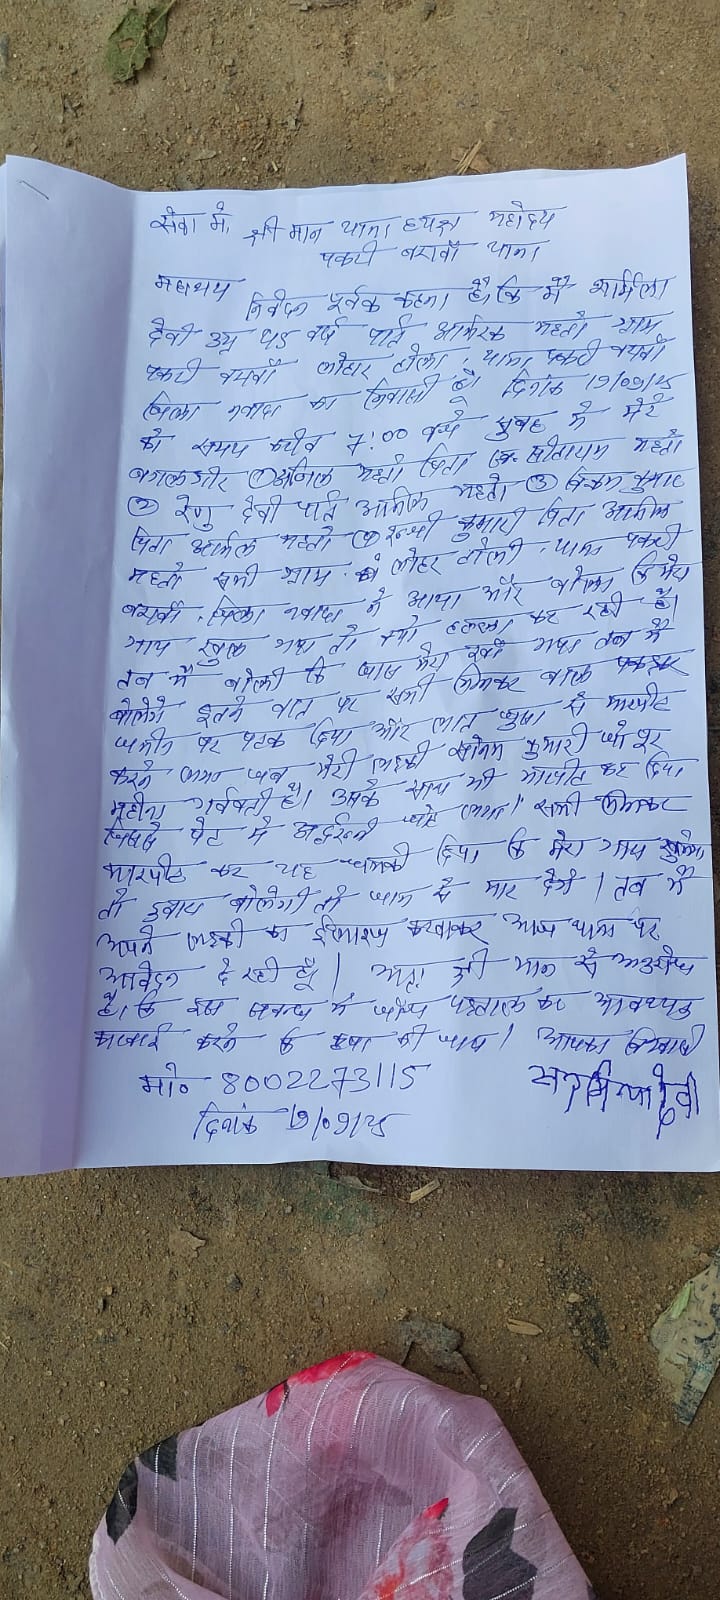 सेवा में,
श्री मान थाना ध्यक्ष महोदय
पकरी बरावाँ थाना
महाशय
निवेदन पूर्वक कहना है कि मैं
देवी उम्र वर्ष पति महतो ग्राम
पकरी बरावाँ लोहार टोला, थाना पकरी बरावाँ
जिला नवादा का निवासी हूँ। दिनांक
को समय करीब 7:00 बजे सुबह में मेरे
बगलगीर ① अनिल महतो पिता स्व. सीताराम महतो
② रेणु देवी पति अनिल महतो ③ विक्रम कुमार
पिता अनिल महतो ④ कुमारी पिता अनिल
महतो सभी ग्राम लोहार टोला, थाना पकरी
बरावाँ, जिला नवादा ने आया और बोला कि मेरा
गाय खुल गया तो क्यों हल्ला कर रही है।
तब मैं बोली कि गाय मेरा गया तब मैं
बोलेंगे इतने बात पर सभी मिलकर बाल पकड़कर
जमीन पर पटक दिया और लात मुक्का से मारपीट
करने लगा जब मेरी लड़की सोनम कुमारी जो
महीना गर्ववती है। उसके साथ भी मारपीट कर दिया
जिससे पेट में अंदुरूनी चोट लगा। सभी मिलकर
मारपीट कर यह धमकी दिया कि मेरा गाय खुलेगा
तो दुबारा बोलेगी तो जान से मार देंगे। तब मैं
अपने लड़की का ईलाज करवाकर आज थाना पर
आवेदन दे रही हूँ। अतः श्री मान से अनुरोध
है कि इस संबन्ध में जाँच पड़ताल कर आवश्यक
कारवाई करने कि कृपा की जाय। आपका विश्वासी
मो० 8002273115
देवी
दिनांक